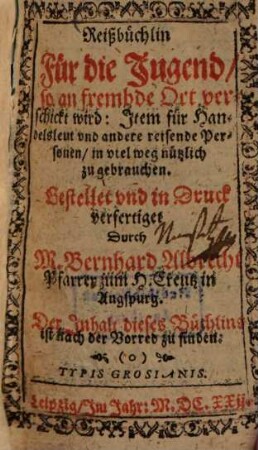 Reißbüchlin
Für die Jugend/
so an fremhde Ort ver-
schickt wird: Item für Han-
delsleut vnd andere reisende Per-
sonen/ in viel weg nützlich
zu gebrauchen.
Gestellet vnd in Druck
verfertiget
Durch
M. Bernhard Albrecht
Pfarrer zum H. Creutz in
Augspurg.
Der Inhalt dieses Büchlins
ist nach der Vorred zu finden.
(o)
TYPIS GROSIANIS.
Leipzig/ Im Jahr: M. DC. XXII